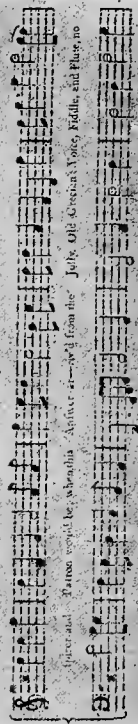 Patron would be, when this Answer ar--riv'd from the Jolly Old Grecian: Voice, Fiddle, and Flute, no